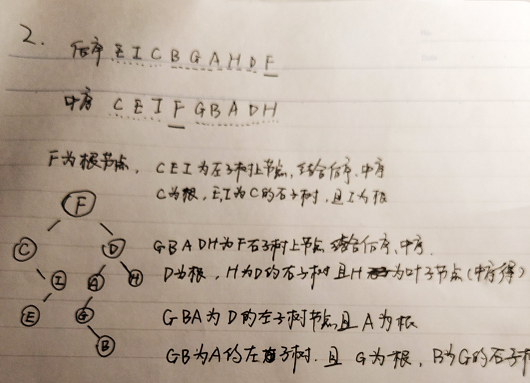 2.
后序 E I C B G A H D F
中序 C E I F G B A D H
F为根节点, C E I 为左子树上节点, 结合后序、中序
C为根, E, I为C的右子树, 且I为根
F
C D
G B A D H为F右子树上节点 结合后序、中序.
I A H
D为根, H为D的右子树且H为叶子节点(中序得)
E G
G B A 为D的左子树节点且A为根
B
G B为A的左子树. 且 G为根, B为G的右子